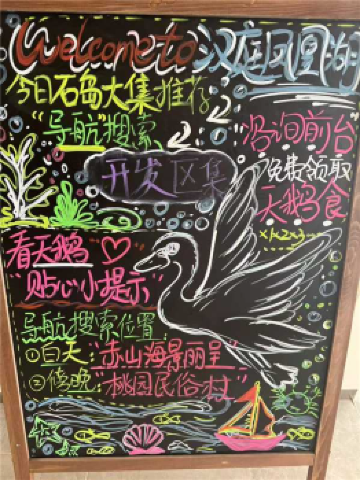 Welcome to 汉庭凤凰湖
今日石岛大集推荐
"导航"搜索
开发区集
咨询前台
免费领取
天鹅食
看天鹅
贴心小提示"
导航搜索位置
①白天"赤山海景丽呈"
②傍晚"桃园民俗村"